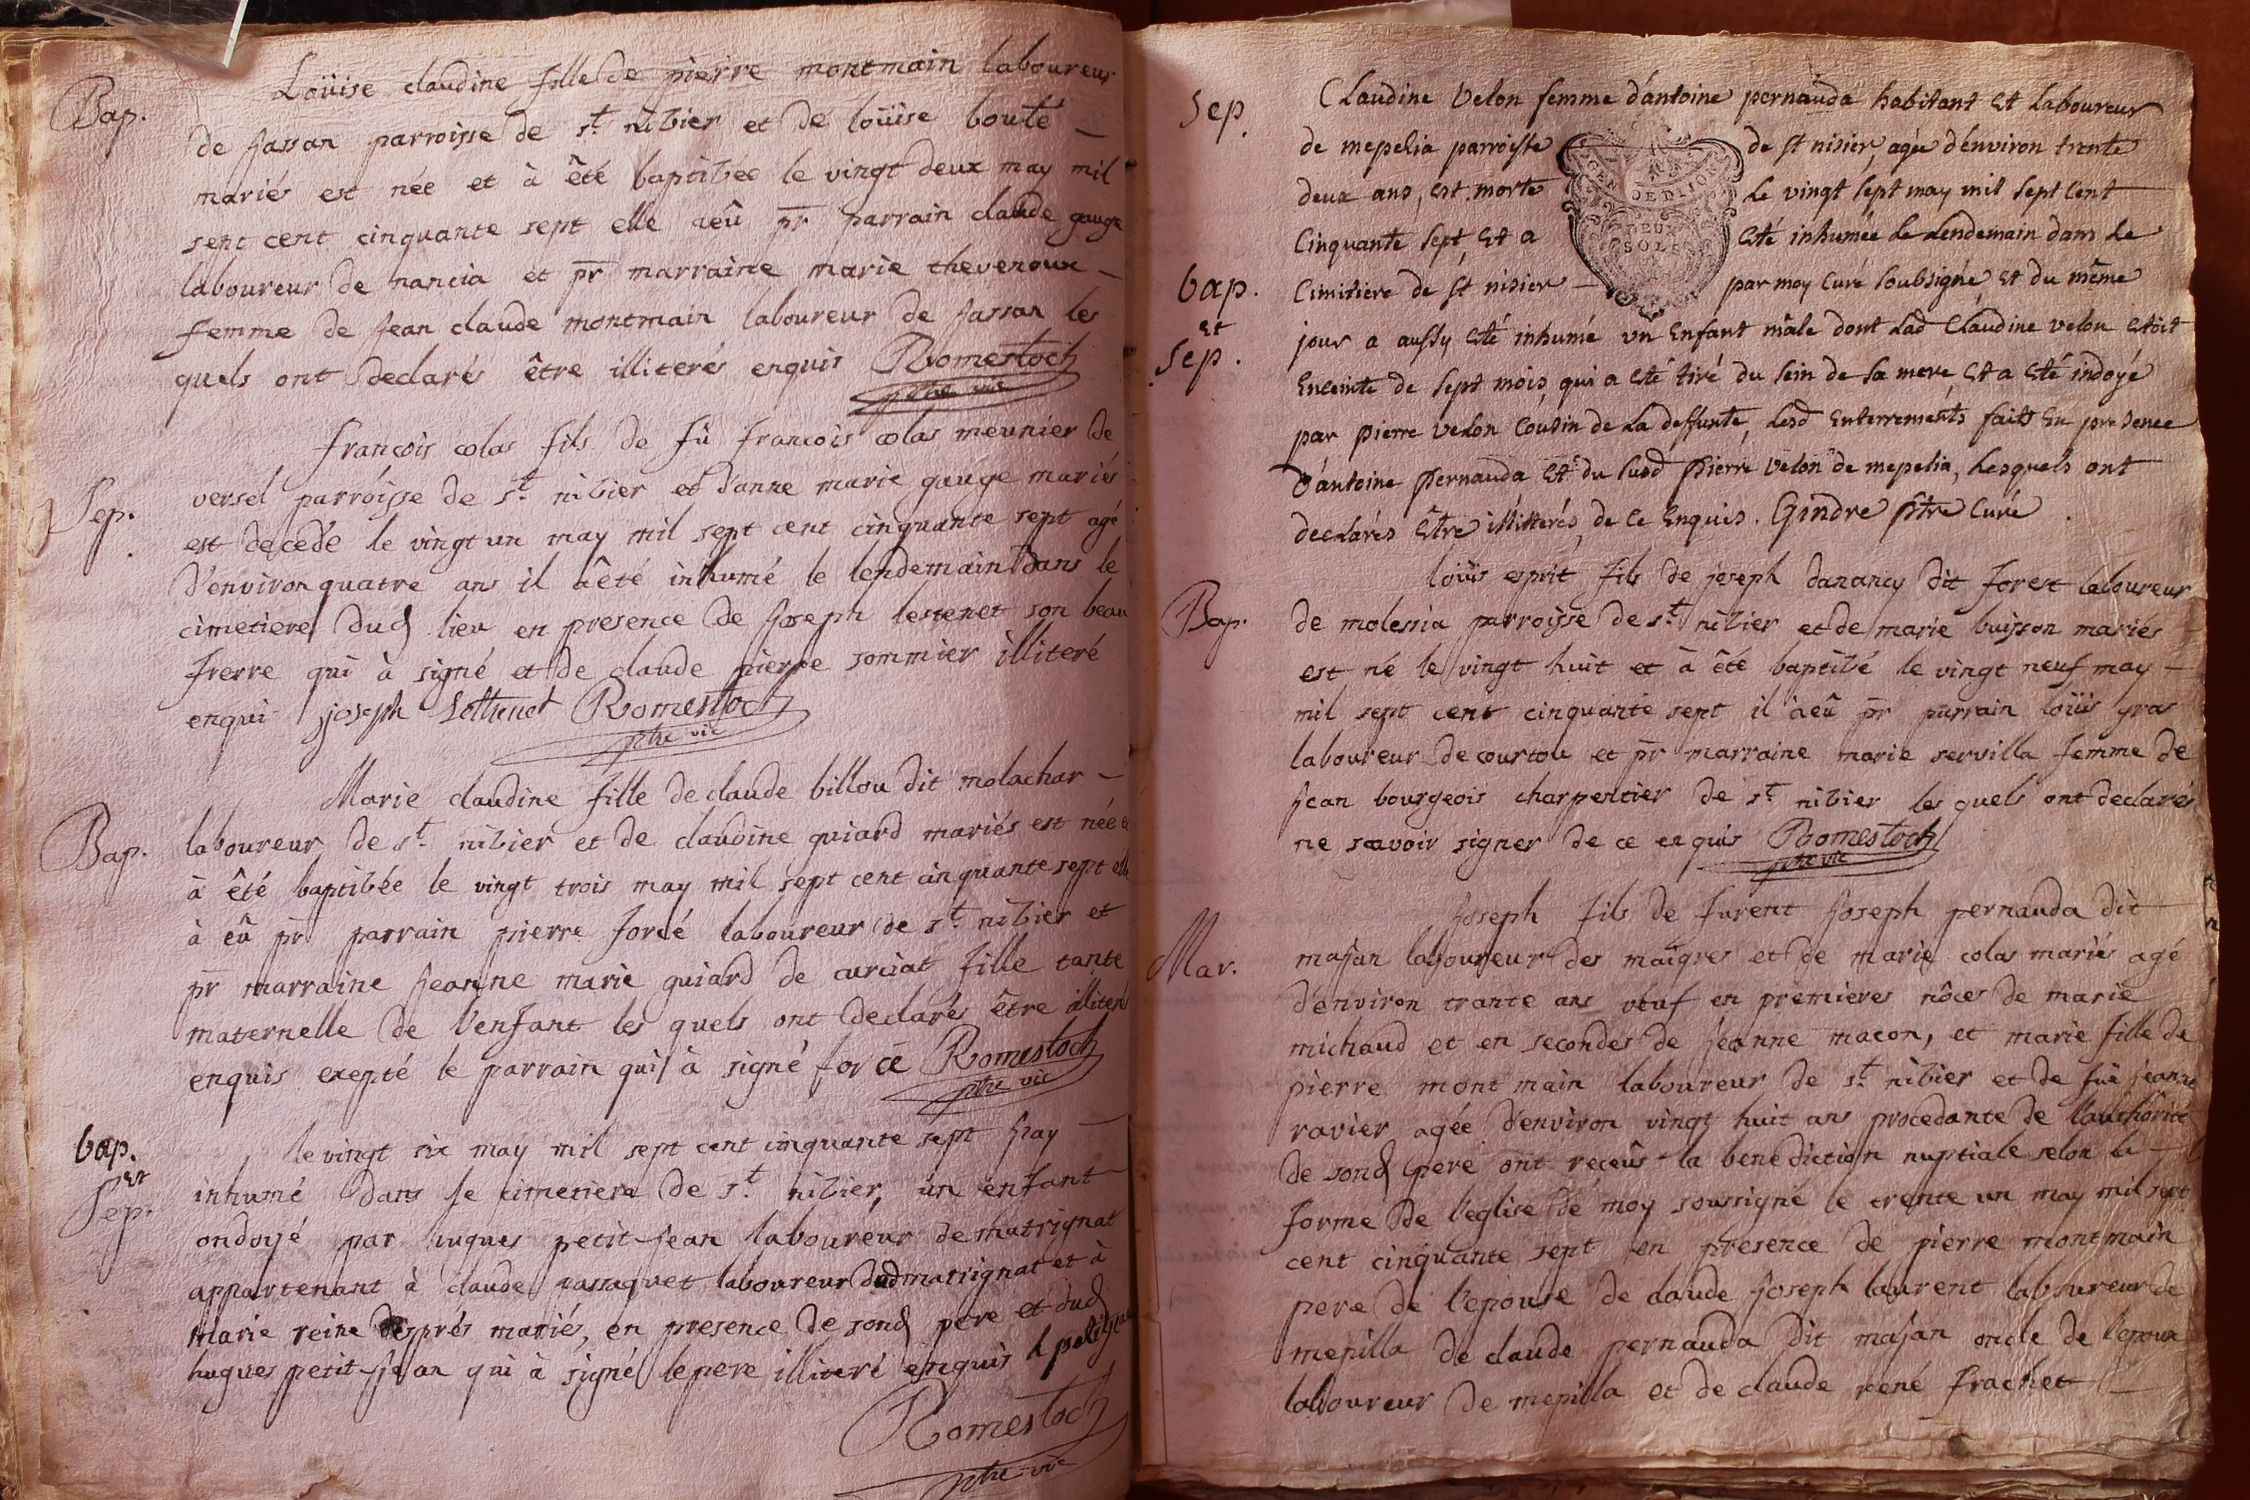 Bap.
Loüise claudine fille de pierre montmain laboureur
de fassan parroisse de st nibier et de loüise bouté
mariés est née et à êté baptibée le vingt deux may mil
sept cent cinquante sept elle aeû pr parrain claude gauge
laboureur de nancia et pr marraine marie thevenoux
femme de jean claude montmain laboureur de fassan les
quels ont declarés être illiterés enquis Romestoch
ptre vic
Sep.
françois colas fils de fû françois colas meunier de
versel parroisse de st nibier et d'anne marie gauge mariés
est decedé le vingt un may mil sept cent cinquante sept agé
d'environ quatre ans il àêté inhumé le lendemain dans le
cimetiere dud lieu en presence de joseph lestenet son beau
frerre qui à signé et de claude pierre sommier illiteré
enqui joseph Lethenet Romestoch
ptre vic
Bap.
Marie claudine fille de claude billou dit molachar
laboureur de st nibier et de claudine guiard mariés est née
à êté baptibée le vingt trois may mil sept cent cinquante sept elle
à eû pr parrain pierre forcé laboureur de st nibier et
pr marraine jeanne marie guiard de curciat fille tante
maternelle de l'enfant les quels ont declarés être illiteré
enquis exepté le parrain qui à signé for cé Romestoch
ptre vic
bap.
et
Sep.
le vingt six may mil sept cent cinquante sept jay
inhumé dans le cimetiere de st nibier, un enfant
ondoyé par hugues petit-jean laboureur de matrignat
appartenant à claude passaquet laboureur dud matrignat et à
marie reine després mariés, en presence de sond pere et dud
hugues petit-jean qui à signé le pere illiteré enquis
Romestoch
ptre vic
Sep.
Claudine Velon femme d'antoine pernauda habitant et Laboureur
de mepelia parroisse de st nisier, agée d'environ trente
deux ans, est morte Le vingt sept may mil sept Cent
Cinquante sept et a Esté inhumée Le Lendemain dans Le
Cimitiere de st nisier par moy Curé soubsigné, et du même
GEN DE DIJON
DEUX
SOLS
bap.
et
sep.
jour a aussy Esté inhumé un Enfant mâle dont Lad Claudine velon Etoit
Enceinte de sept mois, qui a Esté tiré du sein de sa mere, et a Esté indoyé
par pierre velon Cousin de La deffunte, Lesd Enterrements faits En presence
d'antoine pernauda et du susd pierre velon de mepelia, Lesquels ont
declarés Etre illitterés, de Ce Enquis. Gindre ptre Curé
Bap.
loüis esprit fils de joseph danancy dit forest laboureur
de molessia parroisse de st nibier et de marie buisson mariés
est né le vingt huit et à êté baptibé le vingt neuf may
mil sept cent cinquante sept il àeû pr parrain loüis gras
laboureur de courtou et pr marraine marie servilla femme de
jean bourgeois charpentier de st nibier les quels ont declarés
ne scavoir signer de ce enquis Romestoch
ptre vic
Mar.
joseph fils de furent joseph pernauda dit
majan laboureur des maigres et de marie colas mariés agé
d'environ trante ans veuf en premieres nôces de marie
michaud et en secondes de jeanne macon, et marie fille de
pierre montmain laboureur de st nibier et de fûe jeanne
ravier agée d'environ vingt huit ans procedante de l'authôrité
de sond pere ont receûs la benediction nuptiale selon la
forme de l'eglise de moy soussigné le trente un may mil sept
cent cinquante sept en presence de pierre montmain
pere de l'epouse de claude joseph laurent laboureur de
mepilla de claude pernauda dit majan oncle de l'epoux
laboureur de mepilla et de claude rené frachet